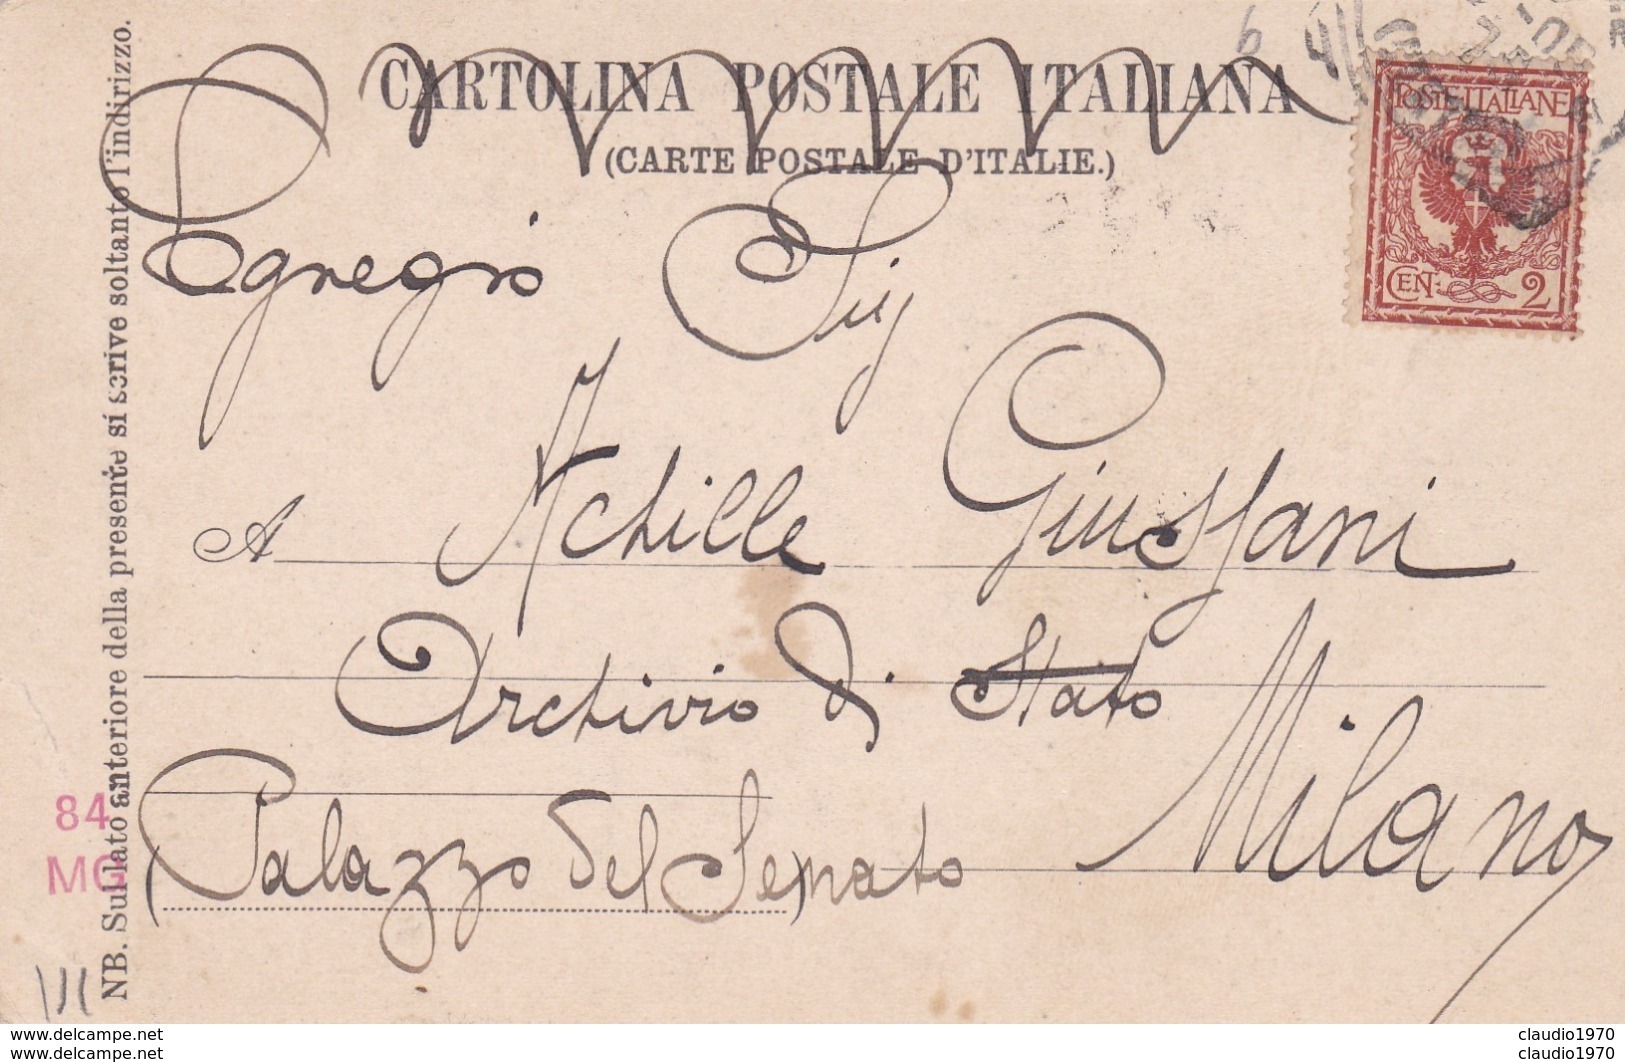 CARTOLINA POSTALE ITALIANA
(CARTE POSTALE D'ITALIE.)
POSTE ITALIANE
CEN: 2
6
Egregio Sig
A Achille Giussani
Archivio di Stato
Milano
(Palazzo del Senato)
NB. Sul lato anteriore della presente si scrive soltanto l'indirizzo.
84
MG
www.delcampe.net
www.delcampe.net
claudio1970
claudio1970